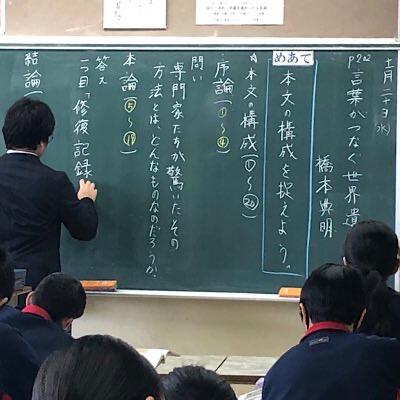 十一月二十日(水)
P202
言葉がつなぐ世界遺
橋本典明
めあて
本文の構成を捉えよう。
☆本文の構成(①〜⑳)
序論(①〜④)
問い
専門家たちが驚いた、その
方法とは、どんなものなのだろうか。
本論(⑤〜⑲)
答え
一つ目「修復記録
結論(